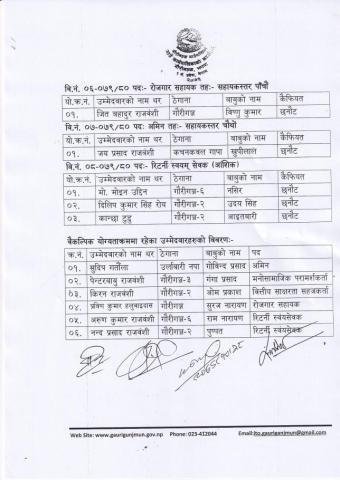 गौरीगञ्ज, झापा
बि.नं. ०६-०७९/८० पदः- रोजगार सहायक तहः- सहायकस्तर पाँचौ
यो.क्र.नं. उम्मेदवारको नाम थर ठेगाना बाबुको नाम कैफियत
०१. जित बहादुर राजवंशी गौरीगञ्ज विष्णु कुमार छनौट
बि.नं. ०७-०७९/८० पदः- अमिन तहः- सहायकस्तर चौथो
यो.क्र.नं. उम्मेदवारको नाम थर ठेगाना बाबुको नाम कैफियत
०१. जय प्रसाद राजवंशी कचनकवल गापा खुपीलाल छनौट
बि.नं. ०८-०७९/८० पदः- रिटर्नी स्वयम् सेवक (आंशिक)
यो.क्र.नं. उम्मेदवारको नाम थर ठेगाना बाबुको नाम कैफियत
०१. मो. मोइन उद्दिन गौरीगञ्ज-६ नसिर छनौट
०२. दिलिप कुमार सिंह रोय गौरीगञ्ज-२ उदय सिंह छनौट
०३. कान्छा टुडु गौरीगञ्ज-२ आइतबारी छनौट
बैकल्पिक योग्यताक्रममा रहेका उम्मेदवारहरुको बिबरणः-
क्र.नं. उम्मेदवारको नाम थर ठेगाना बाबुको नाम पद
०१. सुदिप गतौला उर्लाबारी नपा गोविन्द प्रसाद अमिन
०२. पेन्टरबाबु राजवंशी गौरीगञ्ज-३ गंगा प्रसाद मनोसामाजिक परामर्शकर्ता
०३. किरन राजवंशी गौरीगञ्ज-२ ओम प्रकाश वित्तीय साक्षरता सहजकर्ता
०४. प्रविण कुमार हलुवाइदास गौरीगञ्ज सुरज नारायण रोजगार सहायक
०५. अरुण कुमार राजवंशी गौरीगञ्ज-६ राम नारायण रिटर्नी स्वंयसेवक
०६. नन्द प्रसाद राजवंशी गौरीगञ्ज-२ पुण्पत रिटर्नी स्वंयसेवक
Web Site: www.gaurigunjmun.gov.np Phone: 023-412044 Email:ito.gaurigunjmun@gmail.com